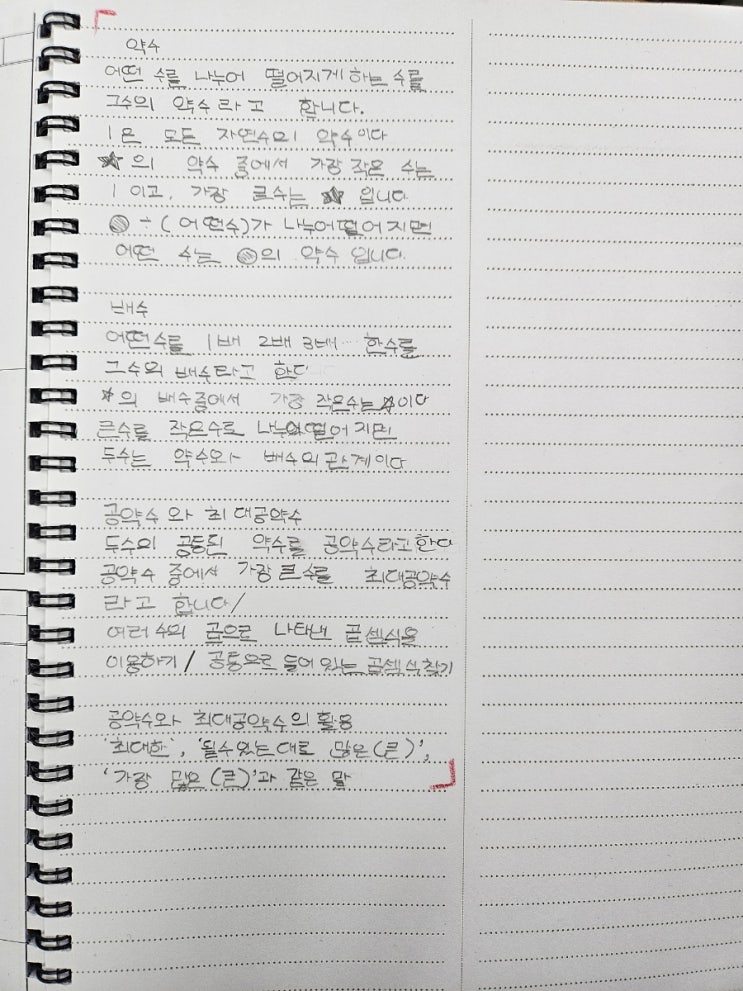 약수
어떤 수를 나누어 떨어지게 하는 수를
그수의 약수 라고 합니다.
1은 모든 자연수의 약수이다
★의 약수 중에서 가장 작은 수는
1 이고, 가장 큰수는 ★ 입니다
● ÷ (어떤수)가 나누어떨어지면
어떤 수는 ●의 약수 입니다.
배수
어떤수를 1배 2배 3배… 한수를
그수의 배수라고 한다
☆의 배수중에서 가장 작은수는 ☆이다
큰수를 작은수로 나누어떨어지면
두수는 약수와 배수의 관계이다
공약수 와 최대공약수
두수의 공통된 약수를 공약수라고한다
공약수 중에서 가장 큰 수를 최대공약수
라고 합니다/
여러 수의 곱으로 나타낸 곱셈식을
이용하기 / 공통으로 들어 있는 곱셈식 찾기
공약수와 최대공약수의 활용
'최대한', '될수있는 대로 많은(큰)',
'가장 많은 (큰)'과 같은 말